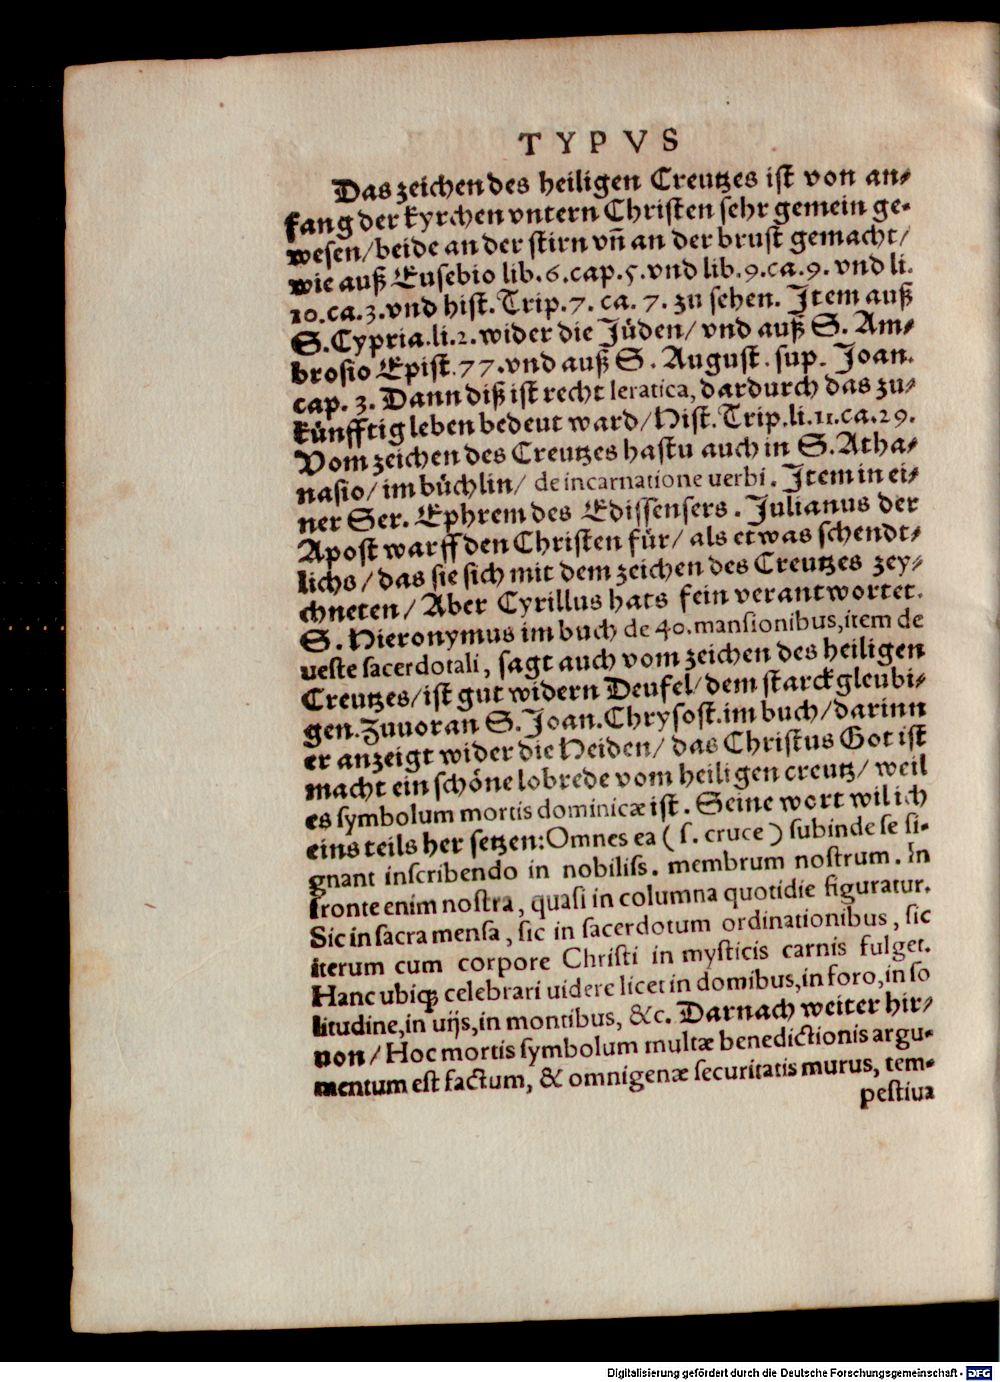 TYPVS
Das zeichen des heiligen Creutzes ist von an⸗
fang der kyrchen vntern Christen sehr gemein ge⸗
wesen/ beide an der stirn vñ an der brust gemacht/
wie auß Eusebio lib. 6. cap. 5. vnd lib. 9. ca. 9. vnd li.
10. ca. 3. vnd hist. Trip. 7. ca. 7. zu sehen. Jtem auß
S. Cypria. li. 2. wider die Jüden/ vnd auß S. Am⸗
brosio Epist. 77. vnd auß S. August. sup. Joan.
cap. 3. Dann diß ist recht Ieratica, dardurch das zu⸗
künfftig leben bedeut ward/ Hist. Trip. li. 11. ca. 29.
Vom zeichen des Creutzes hastu auch in S. Atha⸗
nasio/ im büchlin/ de incarnatione uerbi. Jtem in ei⸗
ner Ser. Ephrem des Edissensers. Julianus der
Apost warff den Christen für/ als etwas schendt⸗
lichs/ das sie sich mit dem zeichen des Creutzes zey⸗
chneten/ Aber Cyrillus hats fein verantwortet.
S. Hieronymus im buch de 40. mansionibus, item de
ueste sacerdotali, sagt auch vom zeichen des heiligen
Creutzes/ ist gut widern Deufel/ dem starckgleubi⸗
gen. Zuuoran S. Joan. Chrysost. im buch/ darinn
er anzeigt wider die Heiden/ das Christus Got ist
macht ein schöne lobrede vom heiligen creutz/ weil
es symbolum mortis dominicæ ist. Seine wort wil ich
eins teils her setzen: Omnes ea ( s. cruce ) subinde se si⸗
gnant inscribendo in nobiliss. membrum nostrum. In
fronte enim nostra, quasi in columna quotidie figuratur.
Sic in sacra mensa, sic in sacerdotum ordinationibus, sic
iterum cum corpore Christi in mysticis carnis fulget.
Hanc ubiq; celebrari uidere licet in domibus, in foro, in so
litudine, in uijs, in montibus, &c. Darnach weiter hir⸗
uon/ Hoc mortis symbolum multæ benedictionis argu⸗
mentum est factum, & omnigenæ securitatis murus, tem⸗
pestiua
Digitalisierung gefördert durch die Deutsche Forschungsgemeinschaft - DFG